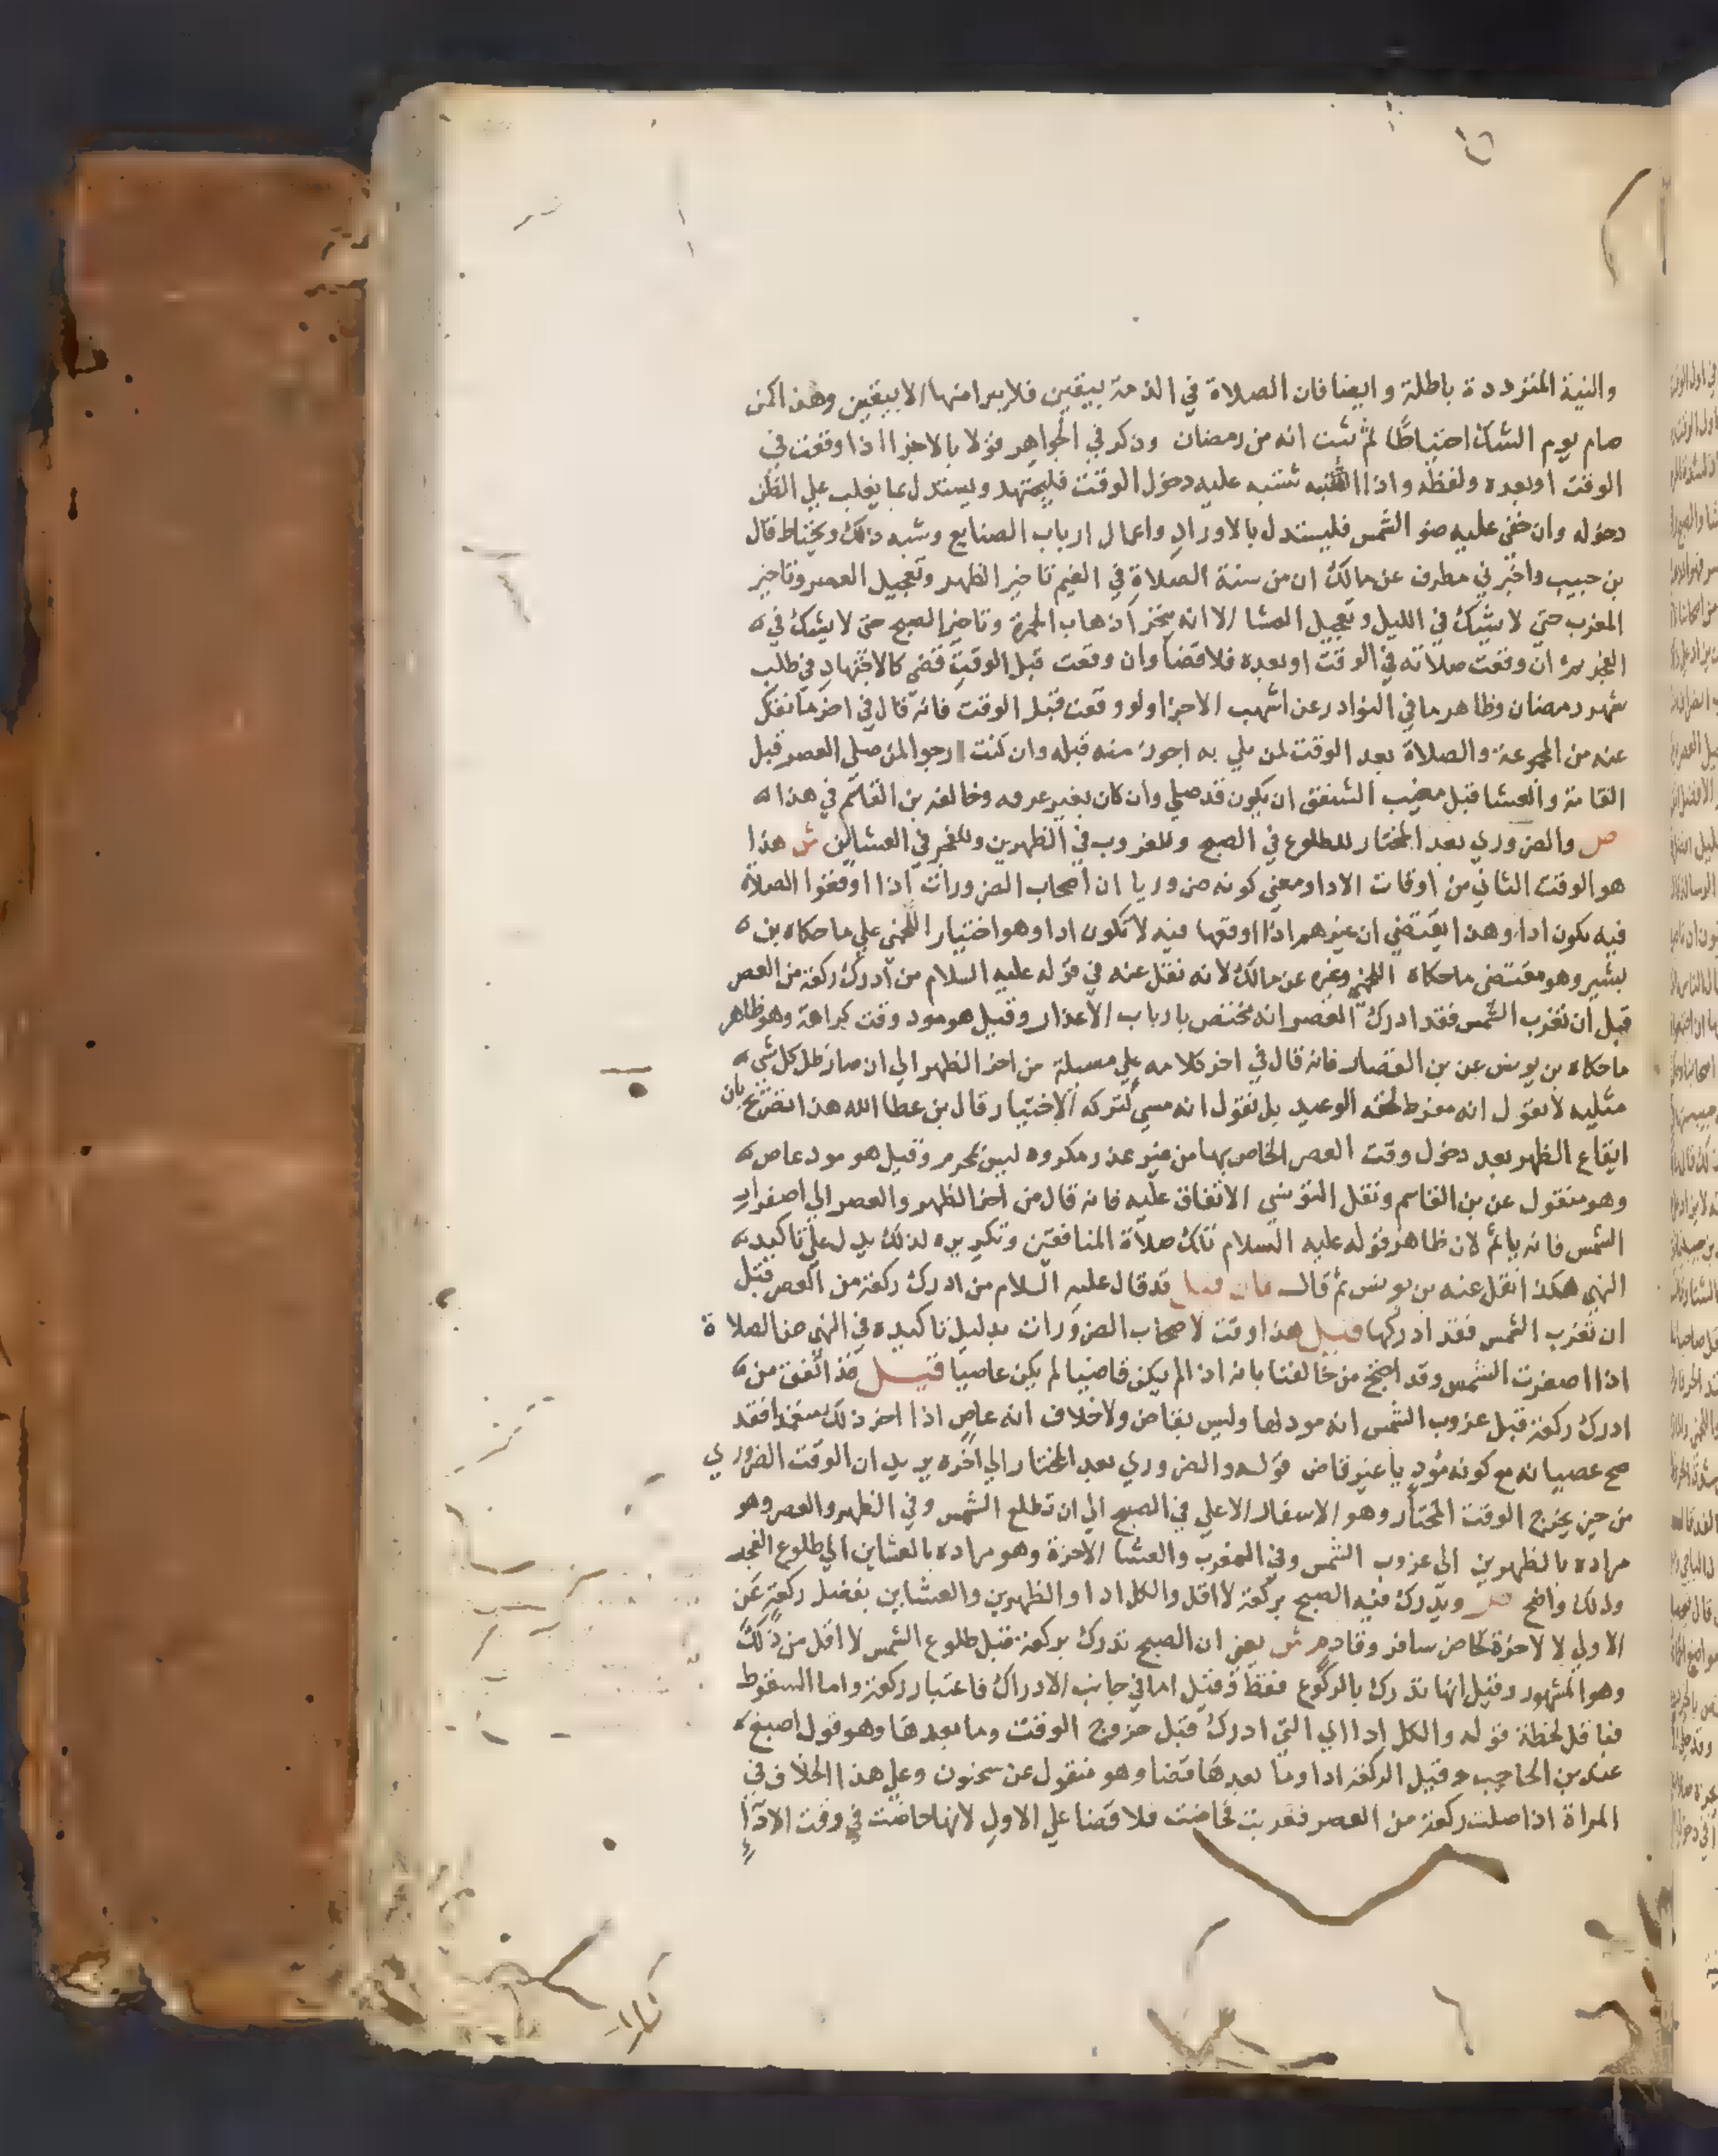 والنية المترددة باطلة وايضا فان الصلاة في الذمة بيقين فلا يبرا منها الا بيقين وهذا كمن
صام يوم الشك احتياطا ثم ثبت انه من رمضان وذكر في الجواهر قولا بالاجزا اذا وقعت في
الوقت اوبعده ولفظه واذا اشتبه عليه دخول الوقت فليجتهد ويستدل بما يغلب علي الظن
دخوله وان خفي عليه ضو الشمس فليستدل بالاوراد واعمال ارباب الصنايع وشبه ذلك ويحتاط قال
بن حبيب واخبرني مطرف عن مالك ان من سنة الصلاة في الغيم تاخير الظهر وتعجيل العصر وتاخير
المغرب حتي لا يشك في الليل وتعجيل العشا الا انه يتحرا ذهاب الحمرة وتاخير الصبح حتي لا يشك في
الفجر ثم ان وقعت صلاته في الوقت اوبعده فلا قضا وان وقعت قبل الوقت قضي كالاجتهاد في طلب
شهر رمضان وظاهر ما في النوادر عن اشهب الاجزا ولو وقعت قبل الوقت فانه قال في اخر ما نقل
عنه من المجموعة والصلاة بعد الوقت لمن بلي به اجوز منه قبله وان كنت ارجوا لمن صلي العصر قبل
القامة والعشا قبل مغيب الشفق ان يكون قد صلي وان كان بغير عرفه وخالفه بن القاسم في هذا
ص والضروري بعد المختار للطلوع في الصبح وللغروب في الظهرين وللفجر في العشاين ش هذا
هو الوقت الثاني من اوقات الادا ومعني كونه ضروريا ان اصحاب الضرورات اذا اوقعوا الصلاة
فيه تكون ادا وهذا يقتضي ان غيرهم اذا اوقعها فيه لا تكون ادا وهو اختيار اللخمي علي ما حكاه بن
بشير وهو مقتضي ما حكاه اللخمي وغيره عن مالك لانه نقل عنه في قوله عليه السلام من ادرك ركعة من العصر
قبل ان تغرب الشمس فقد ادرك العصر انه مختص بارباب الاعذار وقيل هو مود وقت كراهة وهو ظاهر
ما حكاه بن يونس عن بن القصار فانه قال في اخر كلامه علي مسيلة من اخر الظهر الي ان صار ظل كل شي
مثليه لا نقول انه مفرط لحقه الوعيد بل نقول انه مسي لتركه الاختيار قال بن عطا الله هذا تصريح بان
ايقاع الظهر بعد دخول وقت العصر الخاص بها من غير عذر مكروه ليس بمحرم وقيل هو مود عاص
وهو منقول عن بن القاسم ونقل التونسي الاتفاق عليه فانه قال من اخر الظهر والعصر الي اصفرار
الشمس فانه ياثم لان ظاهر قوله عليه السلام تلك صلاة المنافقين وتكريره لذلك يدل علي تاكيد
النهي هكذا نقل عنه بن يونس ثم قال فان قيل قد قال عليه السلام من ادرك ركعة من العصر قبل
ان تغرب الشمس فقد ادركها قيل هذا وقت لاصحاب الضرورات بدليل تاكيده في النهي عن الصلاة
اذا اصفرت الشمس وقد احتج من خالفنا بانه اذا لم يكن قاضيا لم يكن عاصيا قيل قد اتفق من
ادرك ركعة قبل غروب الشمس انه مود لها وليس بقاض ولا خلاف انه عاص اذا اخر ذلك متعمدا فقد
صح عصيانه مع كونه موديا غير قاض قوله والضروري بعد المختار الي اخره يريد ان الوقت الضروري
من حين يخرج الوقت المختار وهو الاسفار الاعلي في الصبح الي ان تطلع الشمس وفي الظهر والعصر وهو
مراده بالظهرين الي غروب الشمس وفي المغرب والعشا الاخرة وهو مراده بالعشاين الي طلوع الفجر
وذلك واضح ص ويدرك فيه الصبح بركعة لا اقل والكل ادا والظهرين والعشاين بفضل ركعة عن
الاولي لا لاخرة كحاضر سافر وقادم ش يعني ان الصبح تدرك بركعة قبل طلوع الشمس لا اقل من ذلك
وهو المشهور وقيل انها تدرك بالركوع فقط وقيل اما في جانب الادراك فاعتبار ركعة واما السقوط
فباقل لحظة قوله والكل ادا اي التي ادرك قبل خروج الوقت وما بعدها وهو قول اصبغ
عند بن الحاجب وقيل الركعة ادا وما بعدها قضا وهو منقول عن سحنون وعلي هذا الخلاف في
المراة اذا صلت ركعة من العصر فغربت فحاضت فلا قضا علي الاول لانها حاضت في وقت الادآء